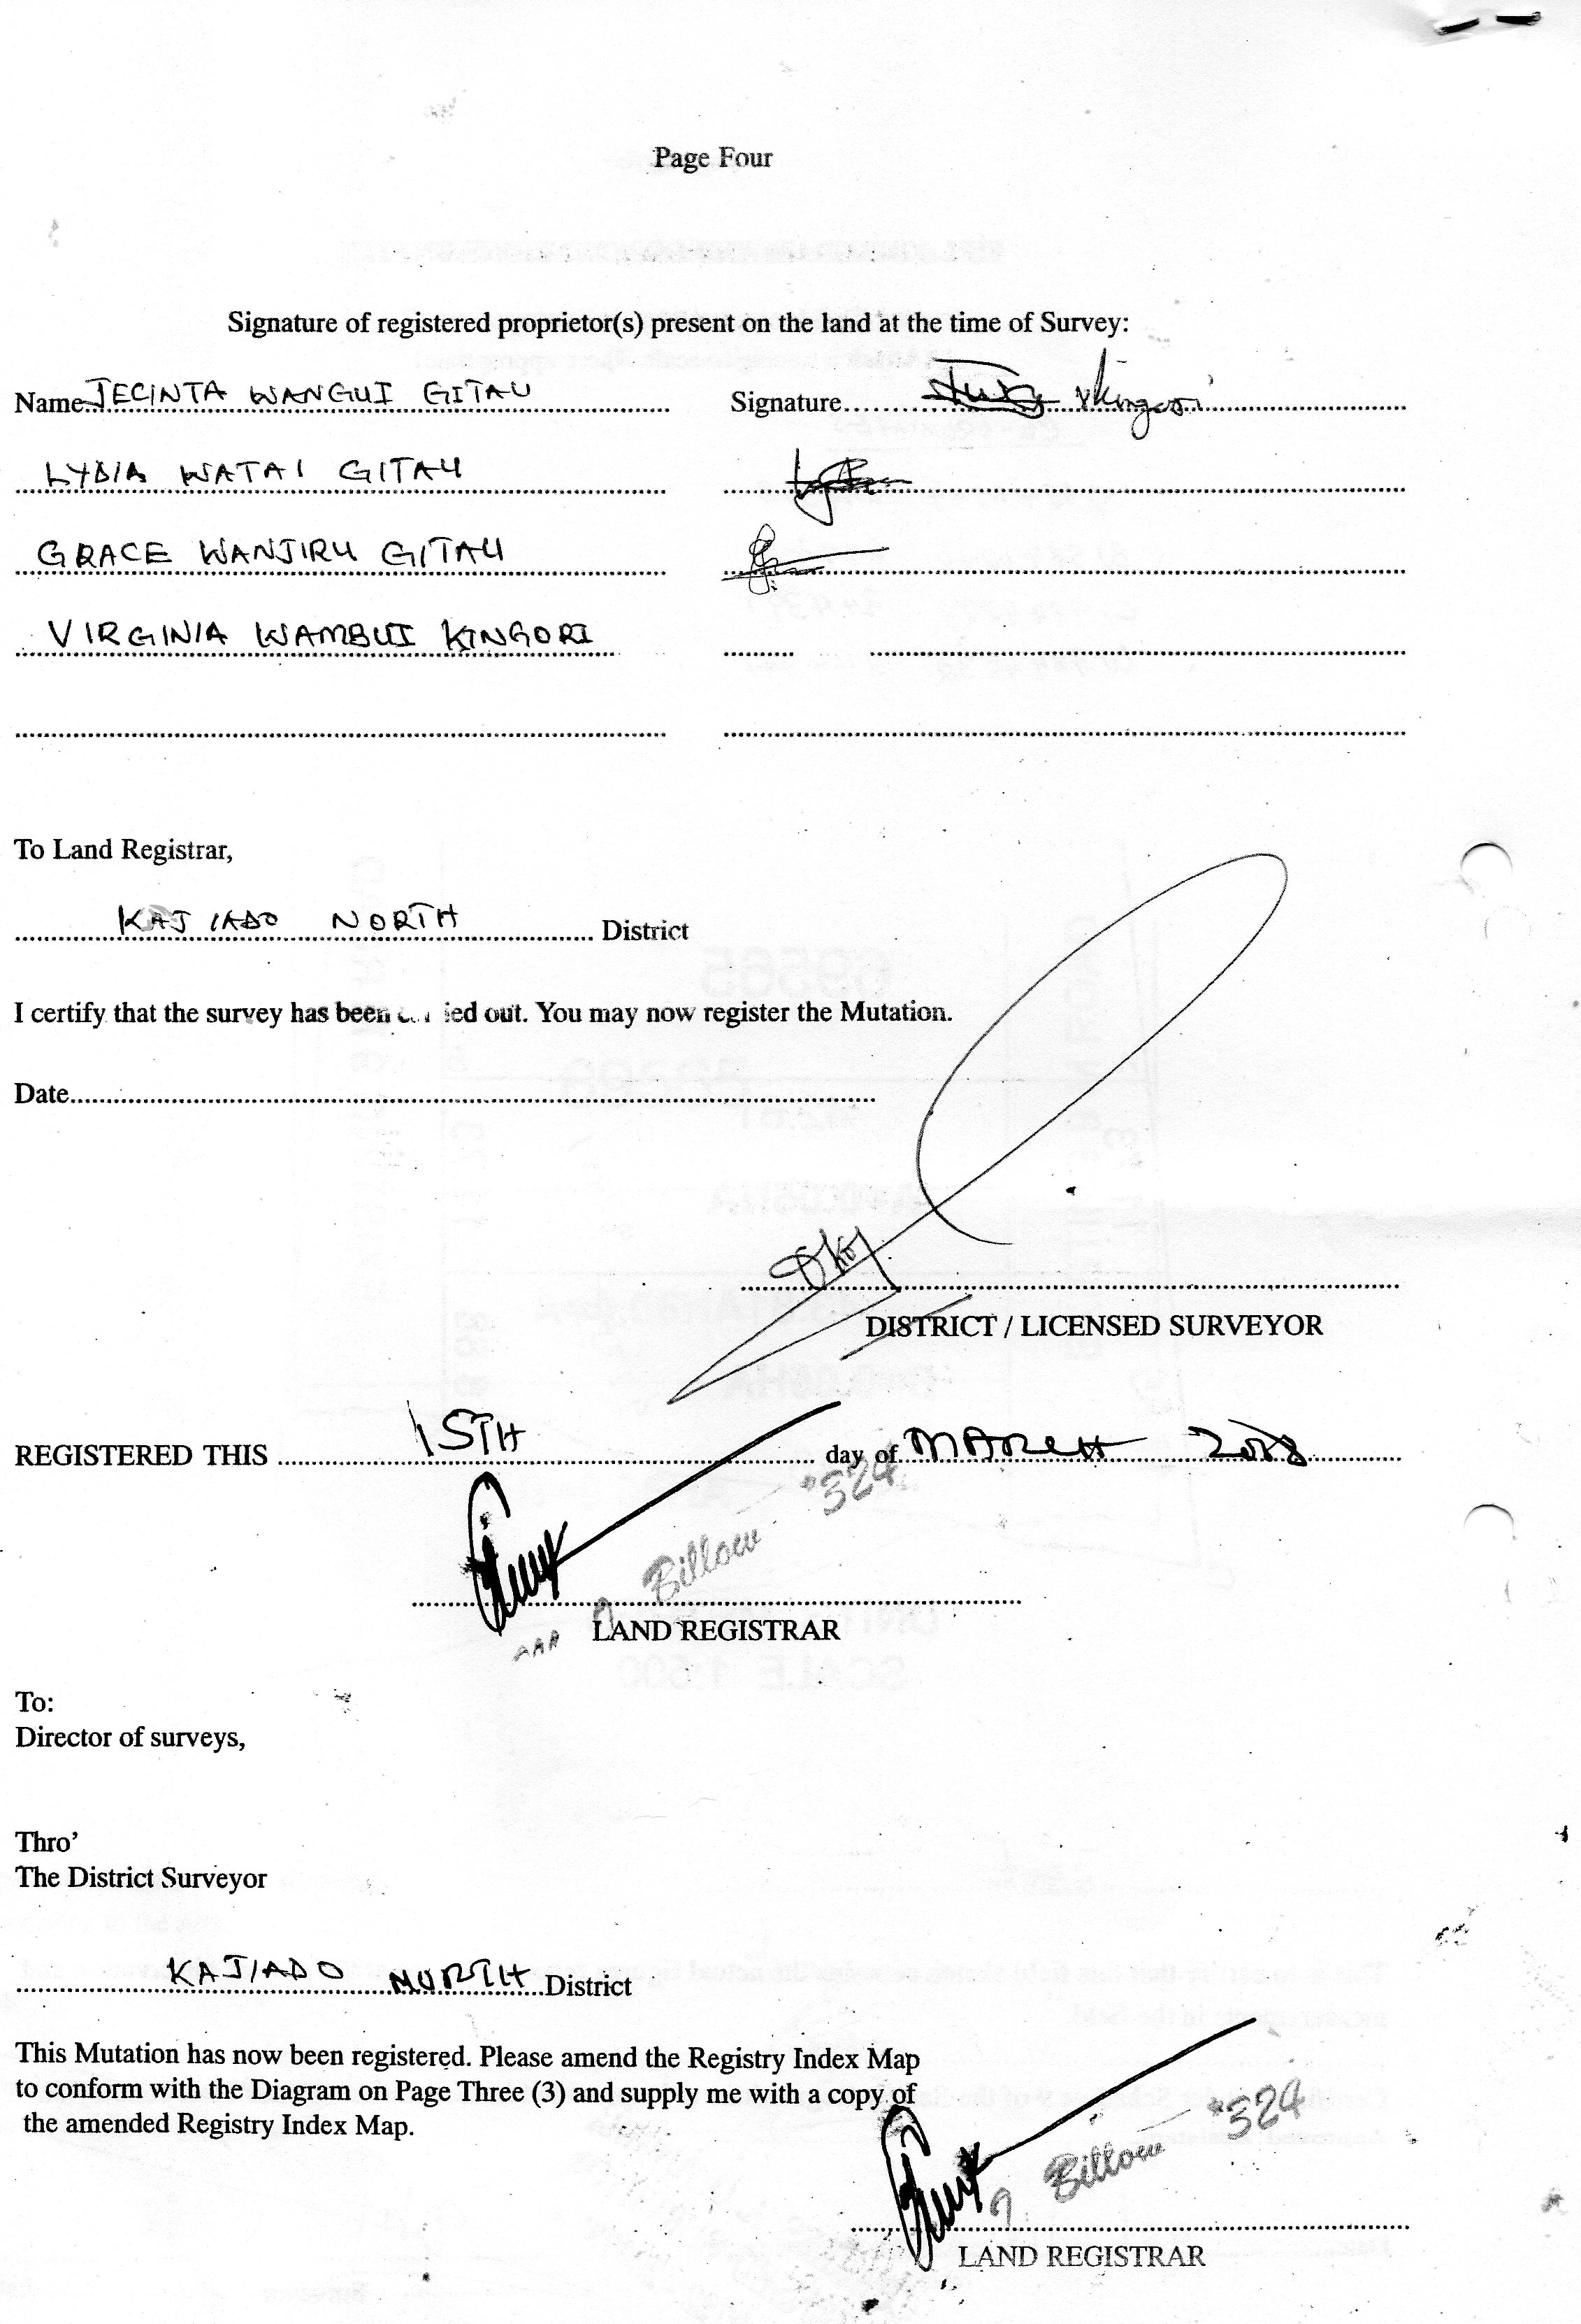 Page Four
Signature of registered proprietor(s) present on the land at the time of Survey:
Name JECINTA WANGUI GITAU Signature VKingori
LYDIA WATAI GITAU
GRACE WANJIRU GITAU
VIRGINIA WAMBUI KINGORI
To Land Registrar,
KAJIADO NORTH District
I certify that the survey has been ied out. You may now register the Mutation.
Date
DISTRICT / LICENSED SURVEYOR
REGISTERED THIS 15TH day of MARCH 2018
Billow - *324
LAND REGISTRAR
To:
Director of surveys,
Thro'
The District Surveyor
KAJIADO NORTH District
This Mutation has now been registered. Please amend the Registry Index Map
to conform with the Diagram on Page Three (3) and supply me with a copy of
the amended Registry Index Map.
Billow - *324
LAND REGISTRAR